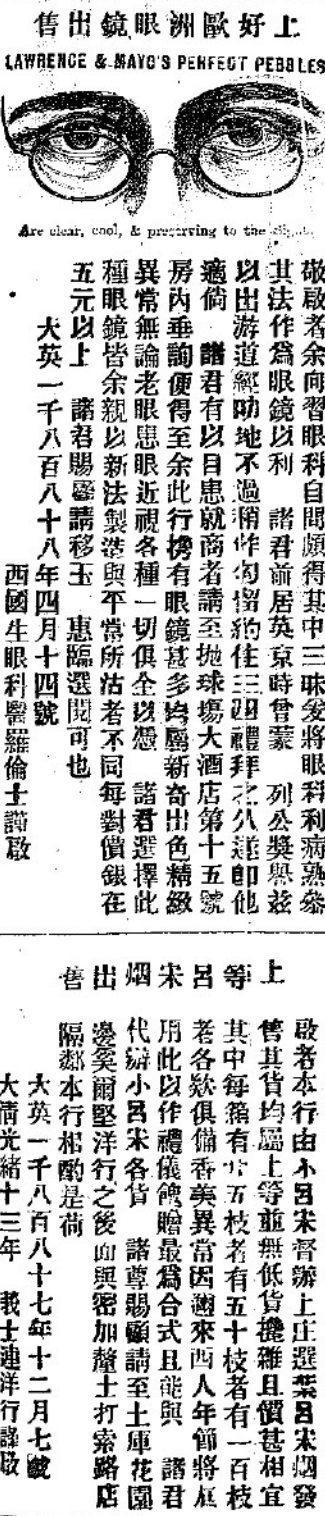 上好歐洲眼鏡出售
LAWRENCE & MAYO'S PERFECT PEBBLES
Are clear, cool, & preserving to the
敬啟者余向習眼科自問頗得其中三昧爰將眼科利病熟參
其法作爲眼鏡以利　諸君前居英京時曾蒙　列公獎譽茲
以出游道經助地不過稍作勾留約住三四禮拜之久遂卽他
適倘　諸君有以目患就商者請至拋球塲大酒店第十五號
房內垂詢便得至余此行携有眼鏡甚多均屬新奇出色精緻
異常無論老眼患眼近視各種一切俱全以憑　諸君選擇此
種眼鏡皆余親以新法製造與平常所沽者不同每對價銀在
五元以上　諸君賜顧請移玉　惠臨選閱可也
大英一千八百八十八年四月十四號
西國生眼科醫羅倫士謹啟
上等呂宋烟出售
啟者本行由小呂宋督辦上庄選葉呂宋烟發
售其貨均屬上等並無低貨攙雜且價甚相宜
其中每箱有廿五枝者有五十枝者有一百枝
者各欵俱備香美異常因邇來西人年節將屆
用此以作禮儀餽贈最爲合式且能與　諸君
代辦小呂宋各貨　諸尊賜顧請至土庫花園
邊奚爾堅洋行之後面與密加釐士打索路店
隔鄰本行相酌是荷
大英一千八百八十七年十二月七號
大淸光緒十三年　義士連洋行謹啟